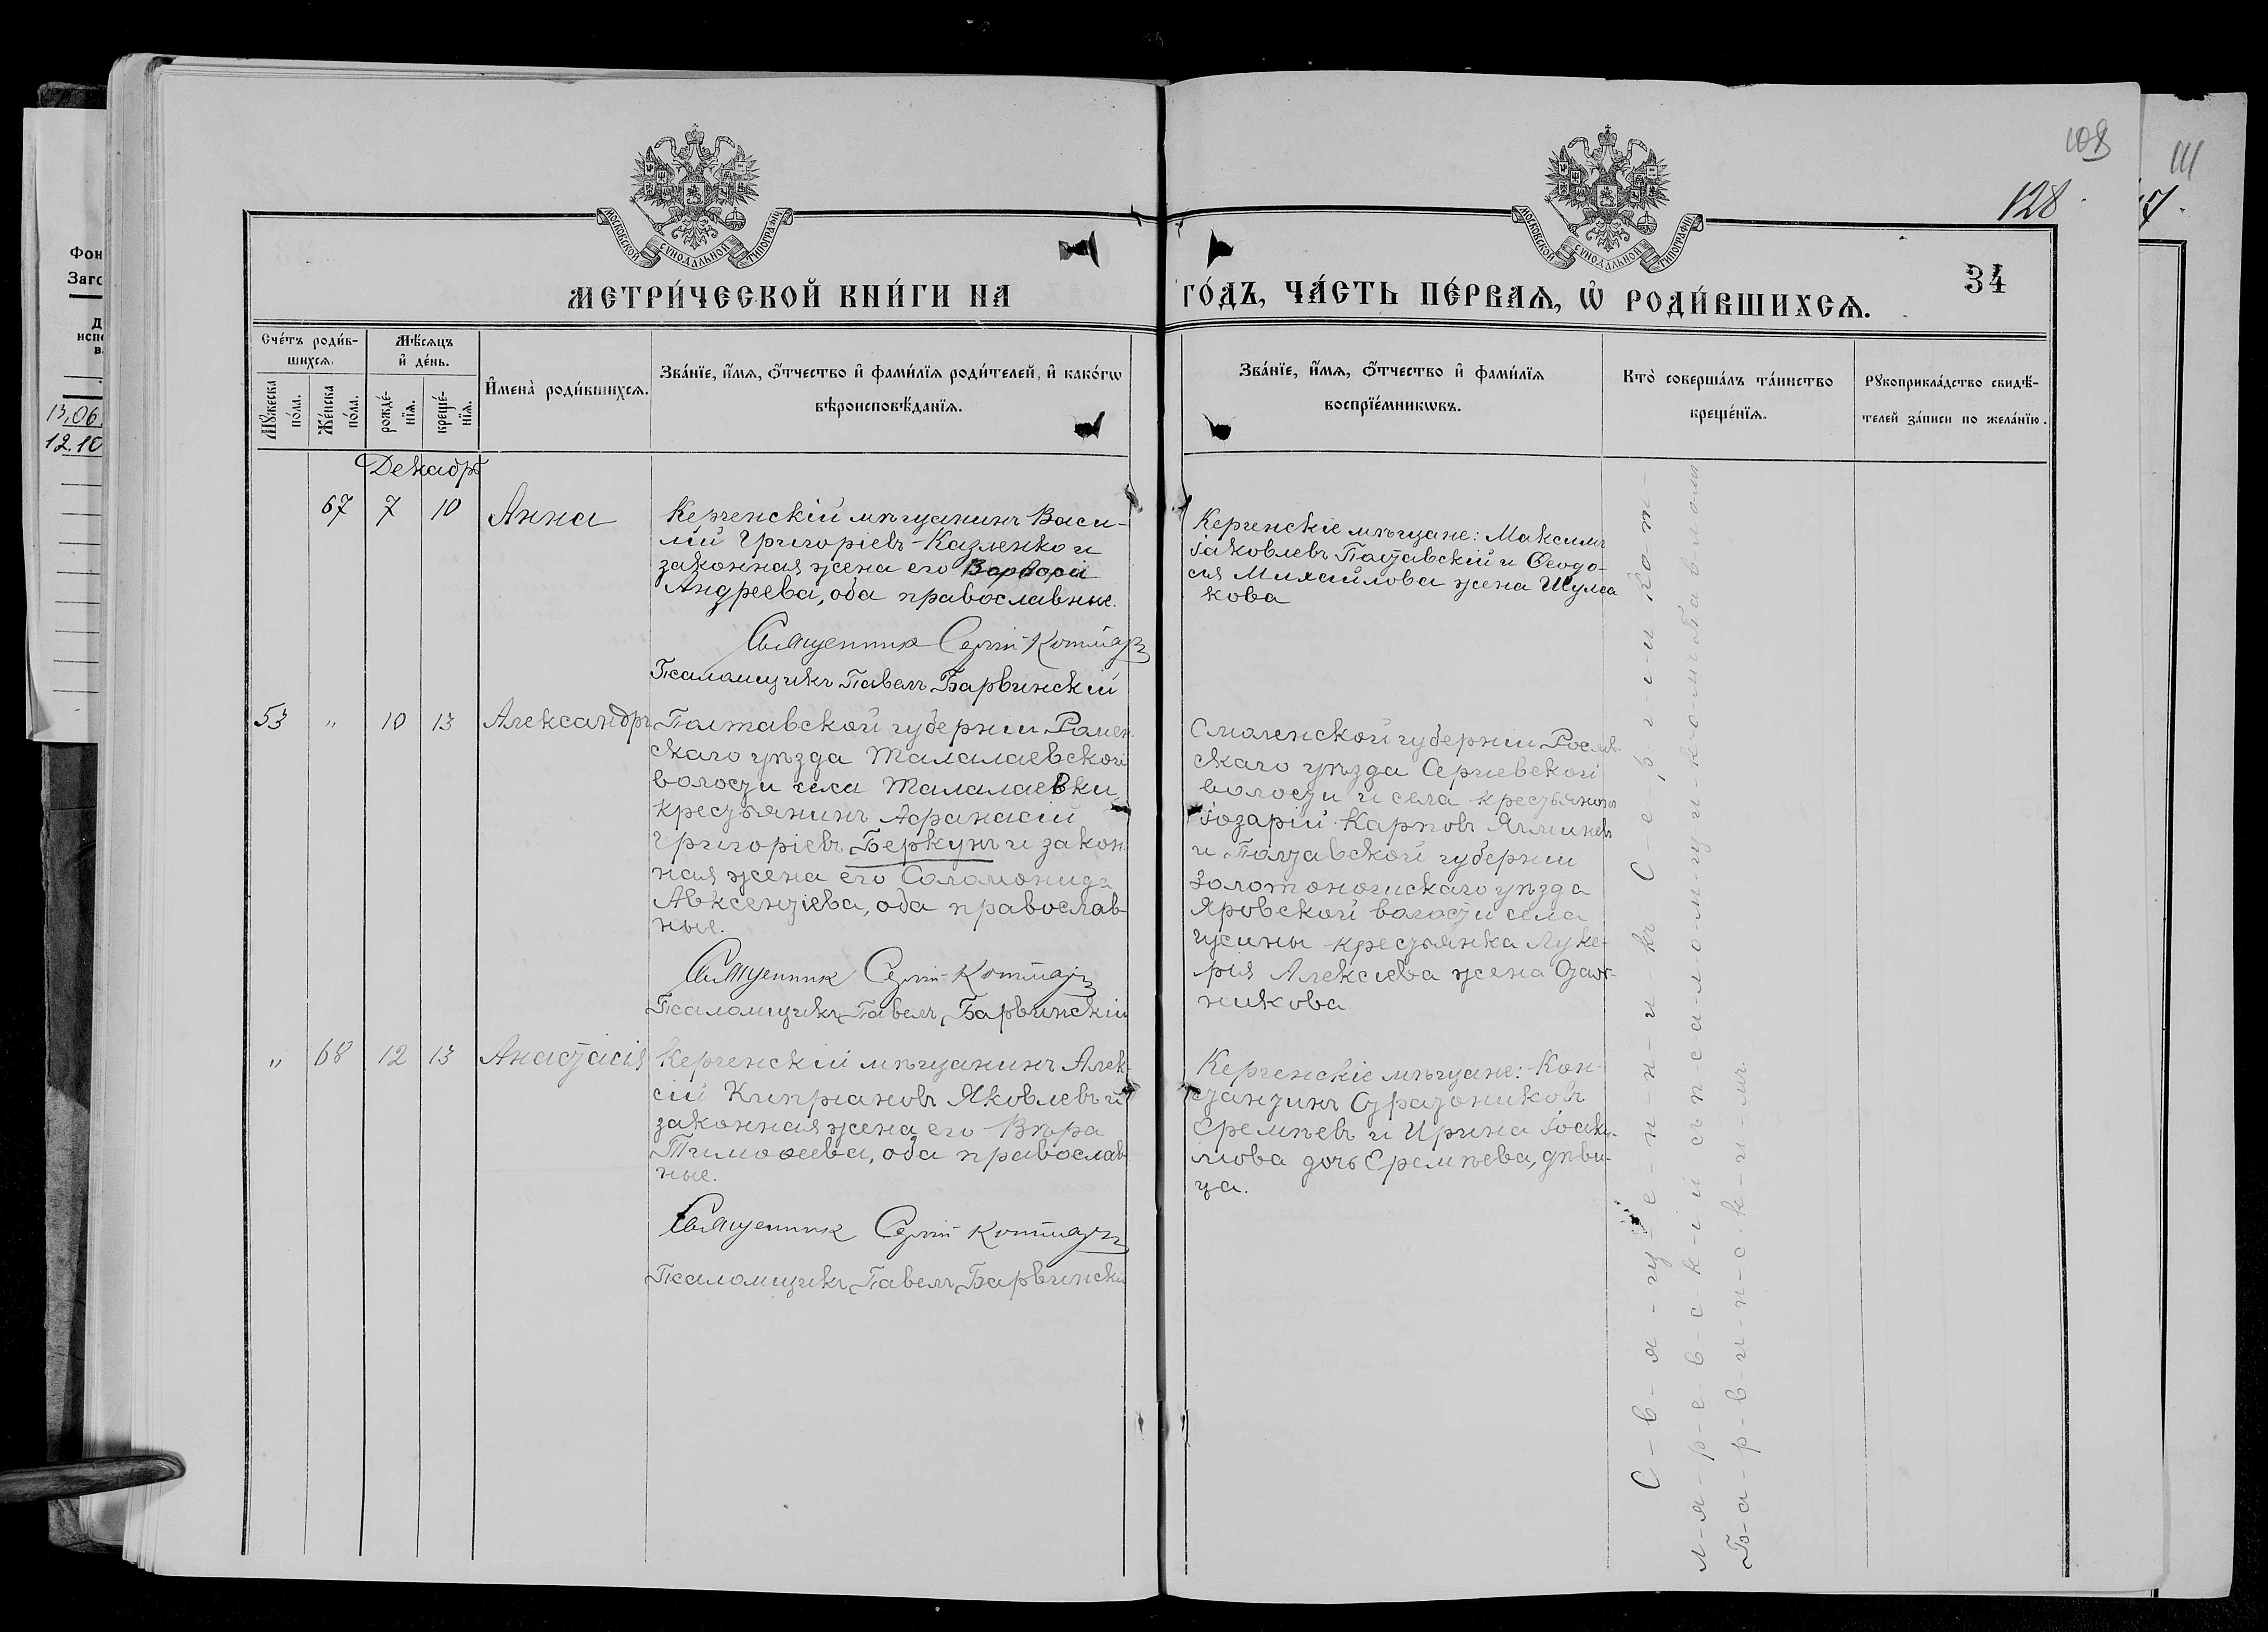 108
111
128.
17.
34
МОСКОВСКОЙ СѴНОДАЛЬНОЙ ТИПОГРАФІИ
МОСКОВСКОЙ СѴНОДАЛЬНОЙ ТИПОГРАФІИ
МЕТРИ́ЧЕСКОЙ КНИ́ГИ НА
ГО́ДЪ, ЧА́СТЬ ПЕ́РВАѦ, Ѡ҆ РОДИ́ВШИХСѦ.
Фон
Заго
Д
испо
в
13.06
12.10
Сче́тъ роди́в-
шихсѧ.
Мꙋ́жеска по́ла.
Же́нска по́ла.
Мѣ́сѧцъ
и҆ де́нь.
рожде́-
нїѧ.
креще́-
нїѧ.
И҆мена̀ роди́вшихсѧ.
Зва́нїе, и҆́мѧ, ѻ҆́тчество и҆ фами́лїѧ роди́телей, и҆ како́гѡ
вѣроисповѣ́данїѧ.
Зва́нїе, и҆́мѧ, ѻ҆́тчество и҆ фами́лїѧ
воспрїе́мникѡвъ.
Кто̀ соверша́лъ та́инство
креще́нїѧ.
Рꙋкоприкла́дство свидѣ́-
телей за́писи по жела́нїю.
Декабрь
67 7 10 Анна
Керченскій мѣщанинъ Васи-
лій Григоріевъ Казленко и
законная жена его Варвара
Андреева, оба православные.
Священникъ Сергій Котляр
Псаломщикъ Павелъ Барвинскій
Керченскіе мѣщане: Максимъ
Іаковлевъ Полтавскій и Ѳеодо-
сія Михайлова жена Шулья
кова
53 " 10 13 Александръ
Полтавской губерніи Ромен
скаго уѣзда Талалаевской
волости села Талалаевки
крестьянинъ Афанасій
Григоріевъ Беркунъ и закон
ная жена его Соломонида
Авксентіева, оба православ-
ные.
Священникъ Сергій Котляр
Псаломщикъ Павелъ Барвинскій
Смоленской губерніи Рослав
скаго уѣзда Сергіевской
волости и села крестьянинъ
Іозарій Карповъ
и Полтавской губерніи
Золотоношскаго уѣзда
Яровской волости села
крестьянка Луке-
рія Алексіева жена
никова
" 68 12 13 Анастасія
Керченскій мѣщанинъ Алек
сій Кипріановъ Яковлевъ и
законная жена его Вѣра
Тимоѳеева, оба православ
ные.
Священникъ Сергій Котляр
Псаломщикъ Павелъ Барвинскій
Керченскіе мѣщане: Кон-
стантинъ Стратониковъ
Еремѣевъ и Ирина Іоаки-
мова дочь Еремѣева, дѣви-
ца.
С-в-я-щ-е-н-н-и-къ С-е-р-г-і-й Кот-
л-я-р-е-в-с-к-і-й съ п-с-а-л-о-м-щ-и-к-о-мъ Павломъ
Б-а-р-в-и-н-с-к-и-мъ.